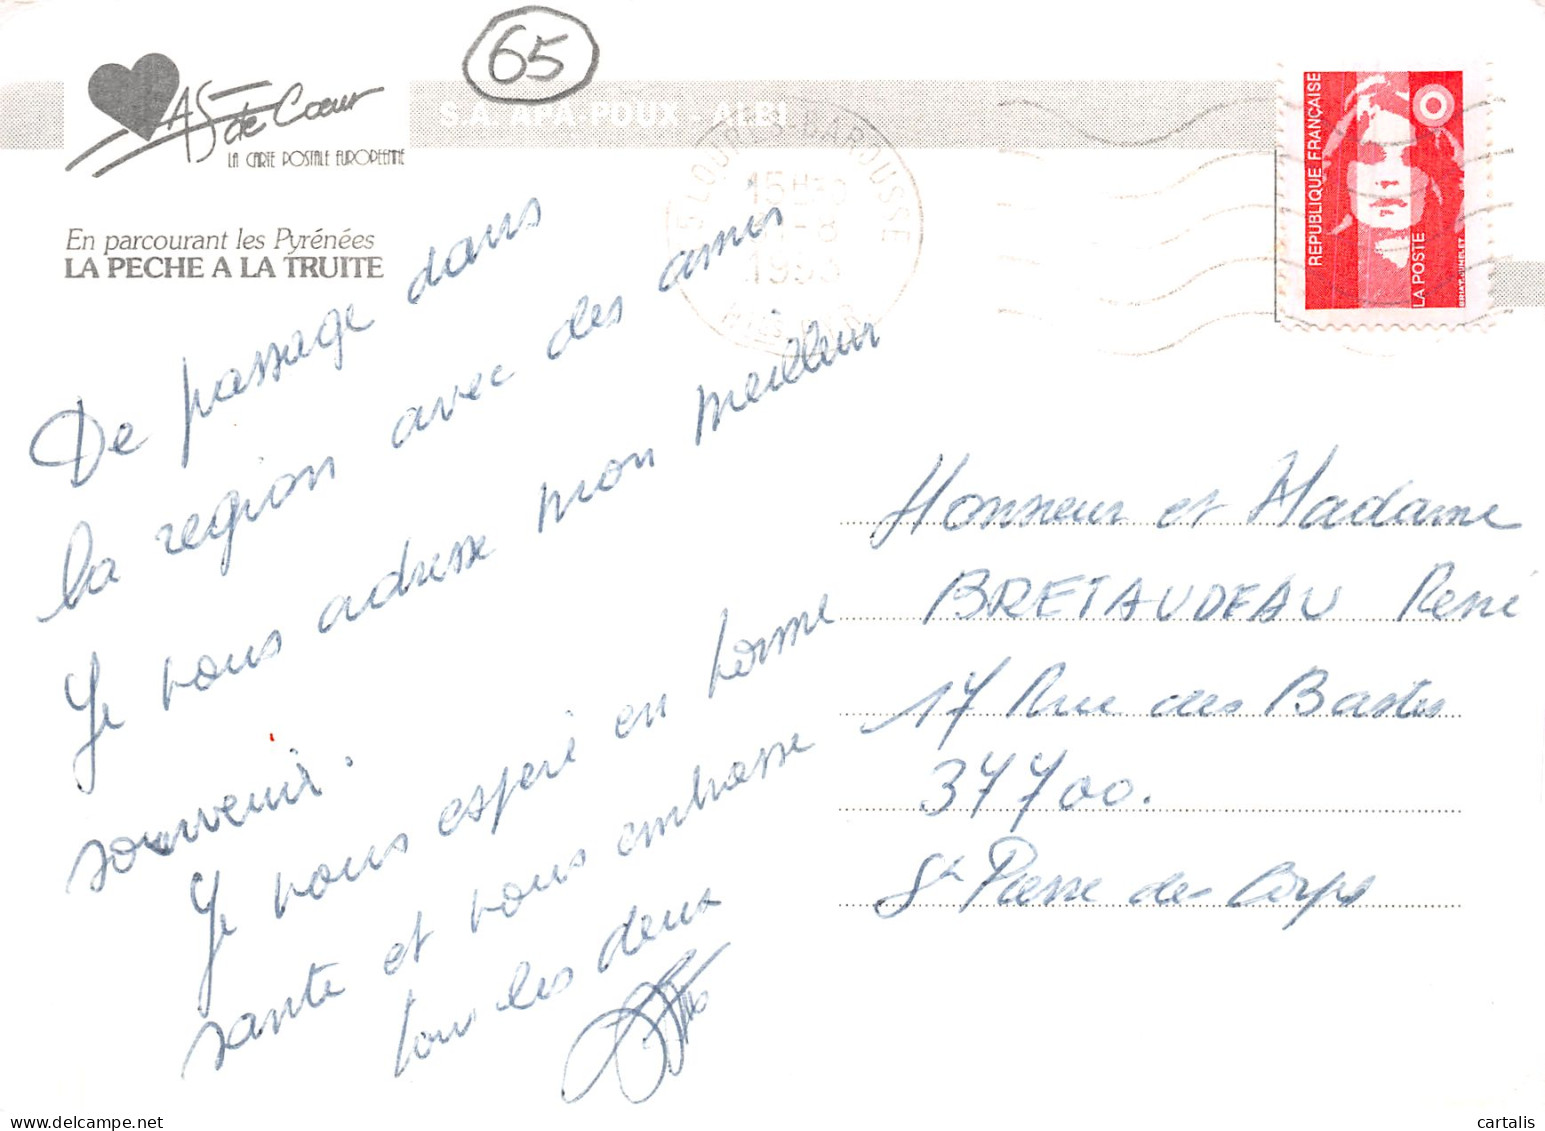 65
AS de Cœur
LA CARTE POSTALE EUROPEENNE
S.A. APA-POUX - ALBI
En parcourant les Pyrénées
LA PECHE A LA TRUITE
LOURES-BAROUSSE
15H
-8
1993
RÉPUBLIQUE FRANÇAISE
LA POSTE
De passage dans
la region avec des amis
Je vous adresse mon meilleur
souvenir.
Je vous esperé en forme
sante et vous embrasse
tous les deux
Monsieur et Madame
BRETAUDEAU René
17 Rue des Bastes
37700.
St Pierre des Corps
cartalis